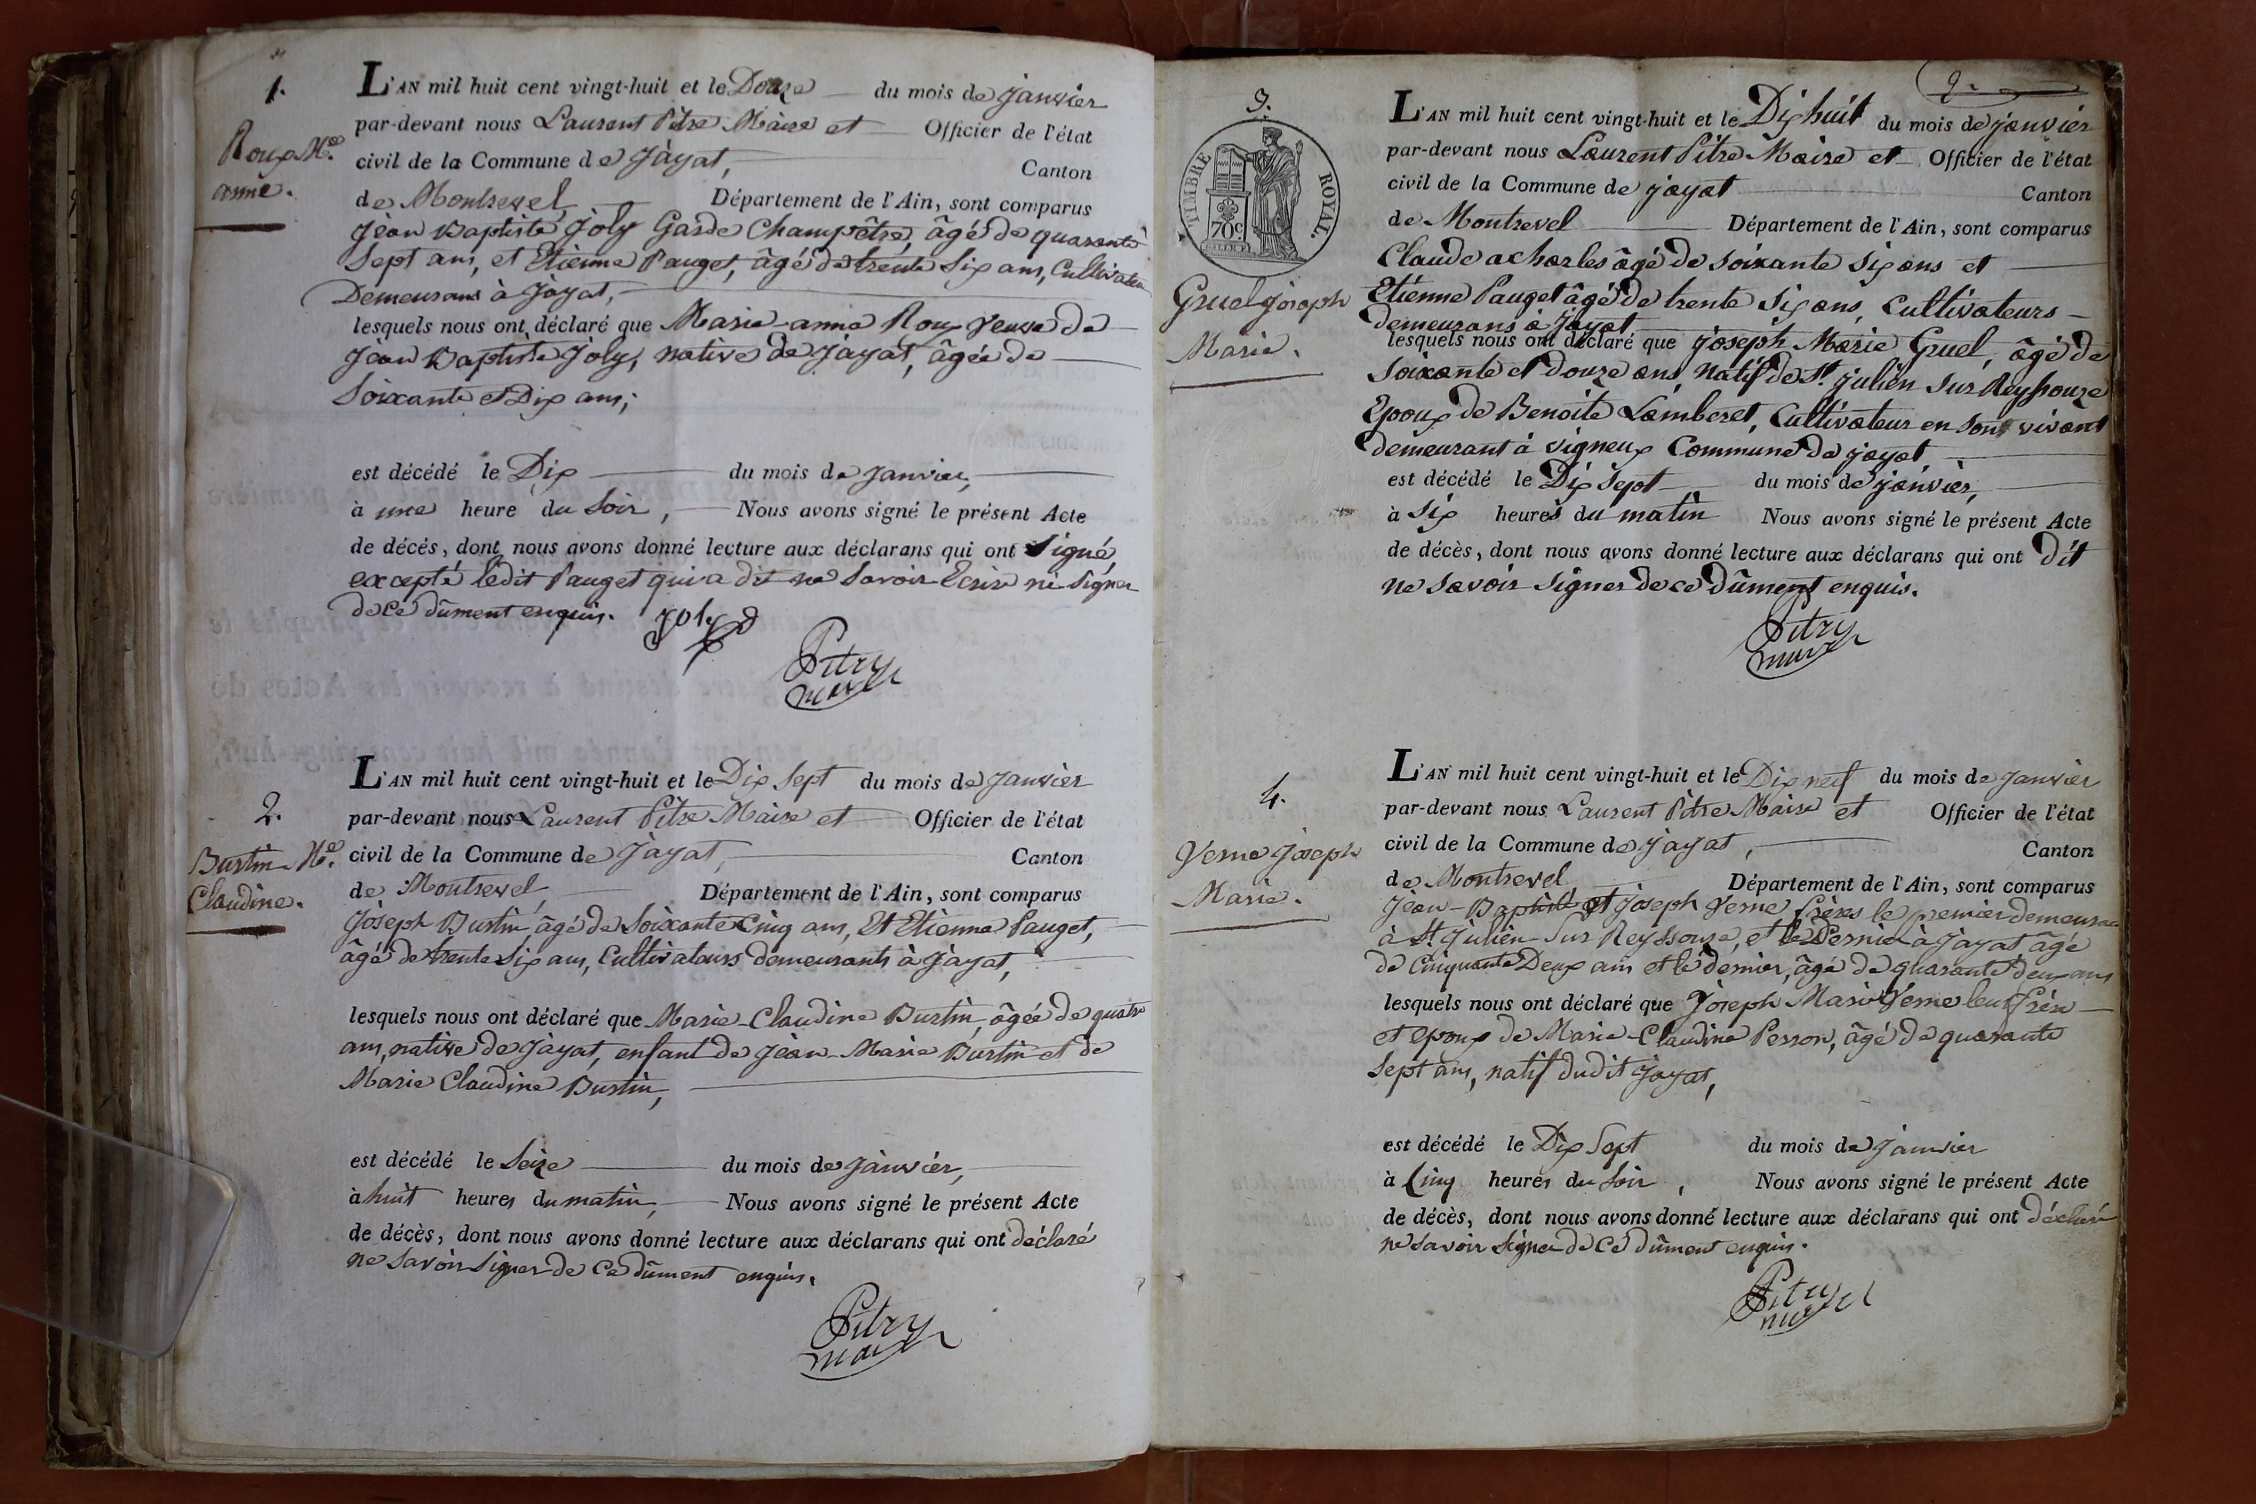 1.
Roux Mie
anne.
L'AN mil huit cent vingt-huit et le Douze du mois de janvier
par-devant nous Laurent Pitre Maire et Officier de l'état
civil de la Commune de Jayat, Canton
de Montrevel Département de l'Ain, sont comparus
jèan Baptiste joly Garde Champêtre, âgé de quarante
Sept ans, et Etienne Pauget, âgé de trente Six ans, Cultivateur
Demeurans à Jayat,
lesquels nous ont déclaré que Marie-anne Roux Veuve de
jèan Baptiste joly, native de jayat, âgée de
Soixante et Dix ans,
est décédé le Dix du mois de janvier,
à une heure du Soir, Nous avons signé le présent Acte
de décés, dont nous avons donné lecture aux déclarans qui ont Signé
excepté ledit Pauget qui a dit ne Savoir Ecrire ni Signer
de ce dûment enquis. joly
Pitre
maire
2.
Burtin Mie
Claudine.
L'AN mil huit cent vingt-huit et le Dix Sept du mois de janvier
par-devant nous Laurent Pitre Maire et Officier de l'état
civil de la Commune de Jayat, Canton
de Montrevel, Département de l'Ain, sont comparus
jòseph Burtin âgé de Soixante Cinq ans, Et Etienne Pauget,
âgé de trente Six ans, Cultivateurs demeurants à Jayat,
lesquels nous ont déclaré que Marie-Claudine Burtin, âgée de quatre
ans, native de jayat, enfant de jèan-Marie Burtin et de
Marie Claudine Burtin,
est décédé le Seize du mois de janvier,
à huit heures du matin, Nous avons signé le présent Acte
de décès, dont nous avons donné lecture aux déclarans qui ont déclaré
ne Savoir Signer de Ce dûment enquis.
Pitre
maire
2.
3.
TIMBRE ROYAL.
70c
Gruel joseph
Marie.
L'AN mil huit cent vingt-huit et le Dix huit du mois de janvier
par-devant nous Laurent Pitre Maire et Officier de l'état
civil de la Commune de jayat Canton
de Montrevel Département de l'Ain, sont comparus
Claude acharles âgé de soixante six ans et
Etienne Pauget âgé de trente six ans, Cultivateurs
demeurans à Jayat
lesquels nous ont déclaré que joseph Marie Gruel, âgé de
soixante et douze ans natif de St. julien sur Reyssouze
Epoux de Benoite Lamberet, Cultivateur en son vivant
demeurant à vigneux Commune de jayat
est décédé le Dix sept du mois de janvier,
à six heures du matin Nous avons signé le présent Acte
de décès, dont nous avons donné lecture aux déclarans qui ont dit
ne savoir signer de ce dûment enquis.
Pitre
maire
4.
Verne joseph
Marie.
L'AN mil huit cent vingt-huit et le Dix neuf du mois de janvier
par-devant nous Laurent Pitre Maire et Officier de l'état
civil de la Commune de jayat, Canton
de Montrevel Département de l'Ain, sont comparus
jèan-Baptiste et joseph Verne frères le premier demeurant
à St. julien Sur Reyssouze, et le Dernier à jayat âgé
de Cinquante Deux ans et le dernier, âgé de quarante deux ans
lesquels nous ont déclaré que joseph Marie Verne leur frère
et epoux de Marie-Claudine Perron, âgé de quarante
Sept ans, natif dudit jayat,
est décédé le Dix Sept du mois de janvier
à Cinq heures du Soir, Nous avons signé le présent Acte
de décès, dont nous avons donné lecture aux déclarans qui ont déclaré
ne Savoir Signer de Ce dûment enquis.
Pitre
maire